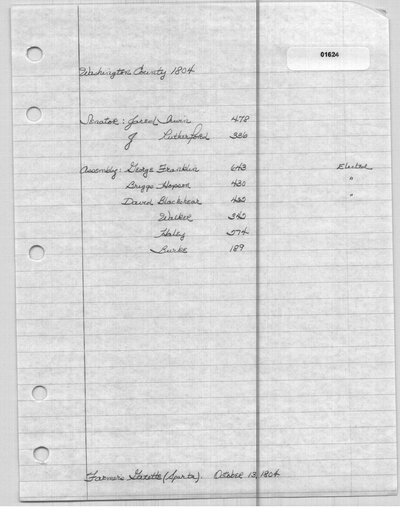 01624
Washington County 1804
Senator: Jared Irwin 478
J Rutherford 336
Assembly: George Franklin 643 Elected
Briggs Hopson 430 "
David Blackshear 422 "
Walker 340
Haley 274
Burke 189
Farmer's Gazette (Sparta). October 13, 1804